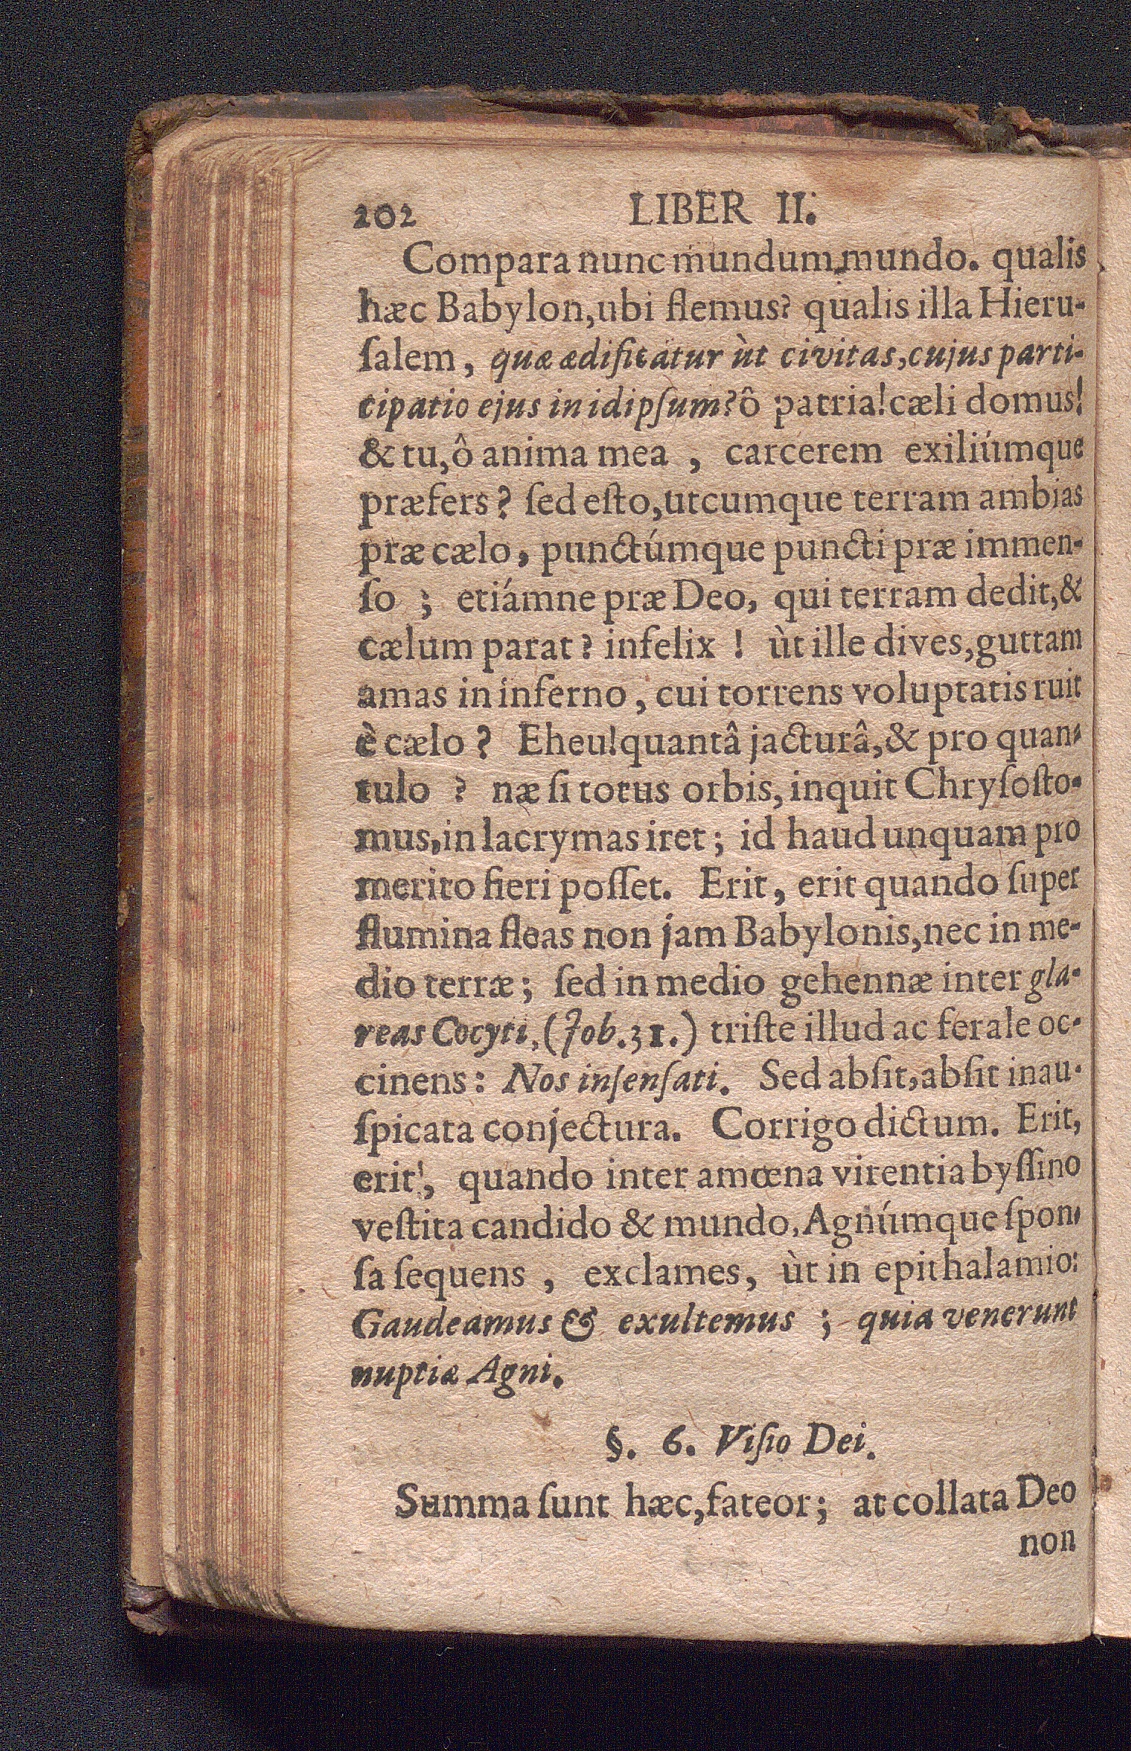 202 LIBER II.
Compara nunc mundum mundo. qualis
hæc Babylon,ubi flemus? qualis illa Hieru-
ſalem, quæ ædificatur ùt civitas,cujus parti-
cipatio ejus in idipſum?ô patria!cæli domus!
& tu,ô anima mea , carcerem exiliúmque
præfers? ſed eſto,utcumque terram ambias
præ cælo, punctúmque puncti præ immen-
ſo ; etiámne præ Deo, qui terram dedit,&
cælum parat? infelix ! ùt ille dives,guttam
amas in inferno, cui torrens voluptatis ruit
è cælo ? Eheu!quantâ jacturâ,& pro quan-
tulo ? næ ſi totus orbis, inquit Chryſoſto-
mus,in lacrymas iret; id haud unquam pro
merito fieri poſſet. Erit, erit quando ſuper
flumina fleas non jam Babylonis,nec in me-
dio terræ; ſed in medio gehennæ inter gla-
reas Cocyti, (Job.31.) triſte illud ac ferale oc-
cinens: Nos inſenſati. Sed abſit,abſit inau-
ſpicata conjectura. Corrigo dictum. Erit,
erit, quando inter amœna virentia byſſino
veſtita candido & mundo, Agnúmque ſpon-
ſa ſequens , exclames, ùt in epithalamio:
Gaudeamus & exultemus ; quia venerunt
nuptiæ Agni.
§. 6. Viſio Dei.
Summa ſunt hæc,fateor; at collata Deo
non